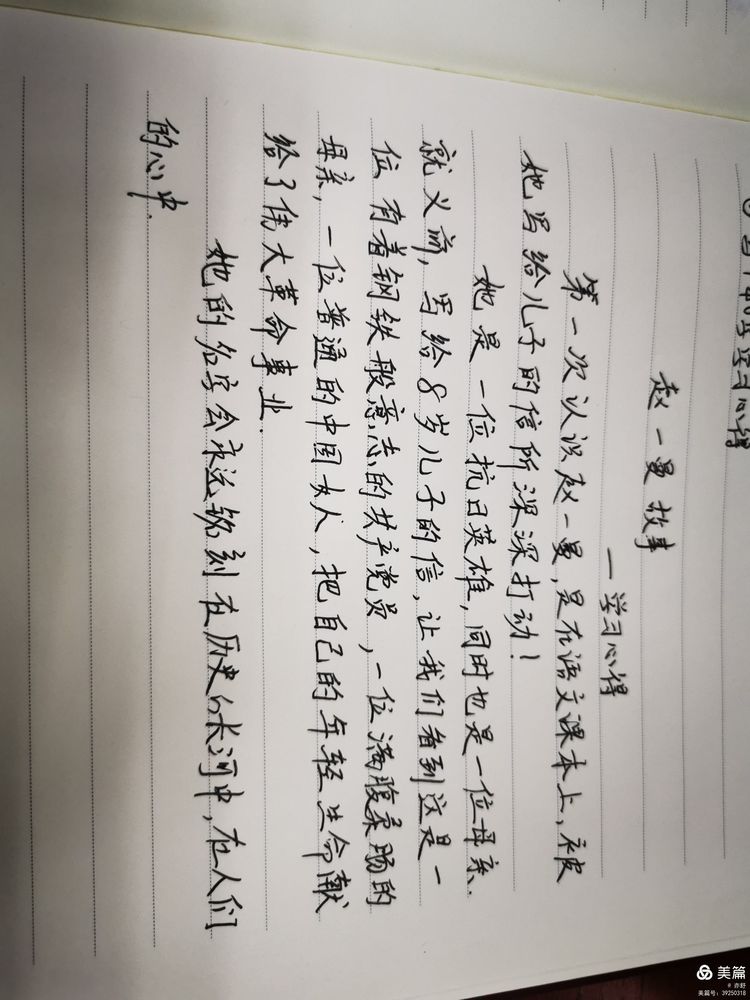 学习心得
赵一曼故事
一学习心得
第一次认识赵一曼,是在语文课本上,被
她写给儿子的信所深深打动!
她是一位抗日英雄,同时也是一位母亲.
就义前,写给8岁儿子的信,让我们看到这是一
位有着钢铁般意志的共产党员,一位满腹柔肠的
母亲,一位普通的中国女人,把自己的年轻生命献
给了伟大革命事业.
她的名字会永远铭刻在历史的长河中,在人们
的心中.
美篇
@亦舒
美篇号:39250318